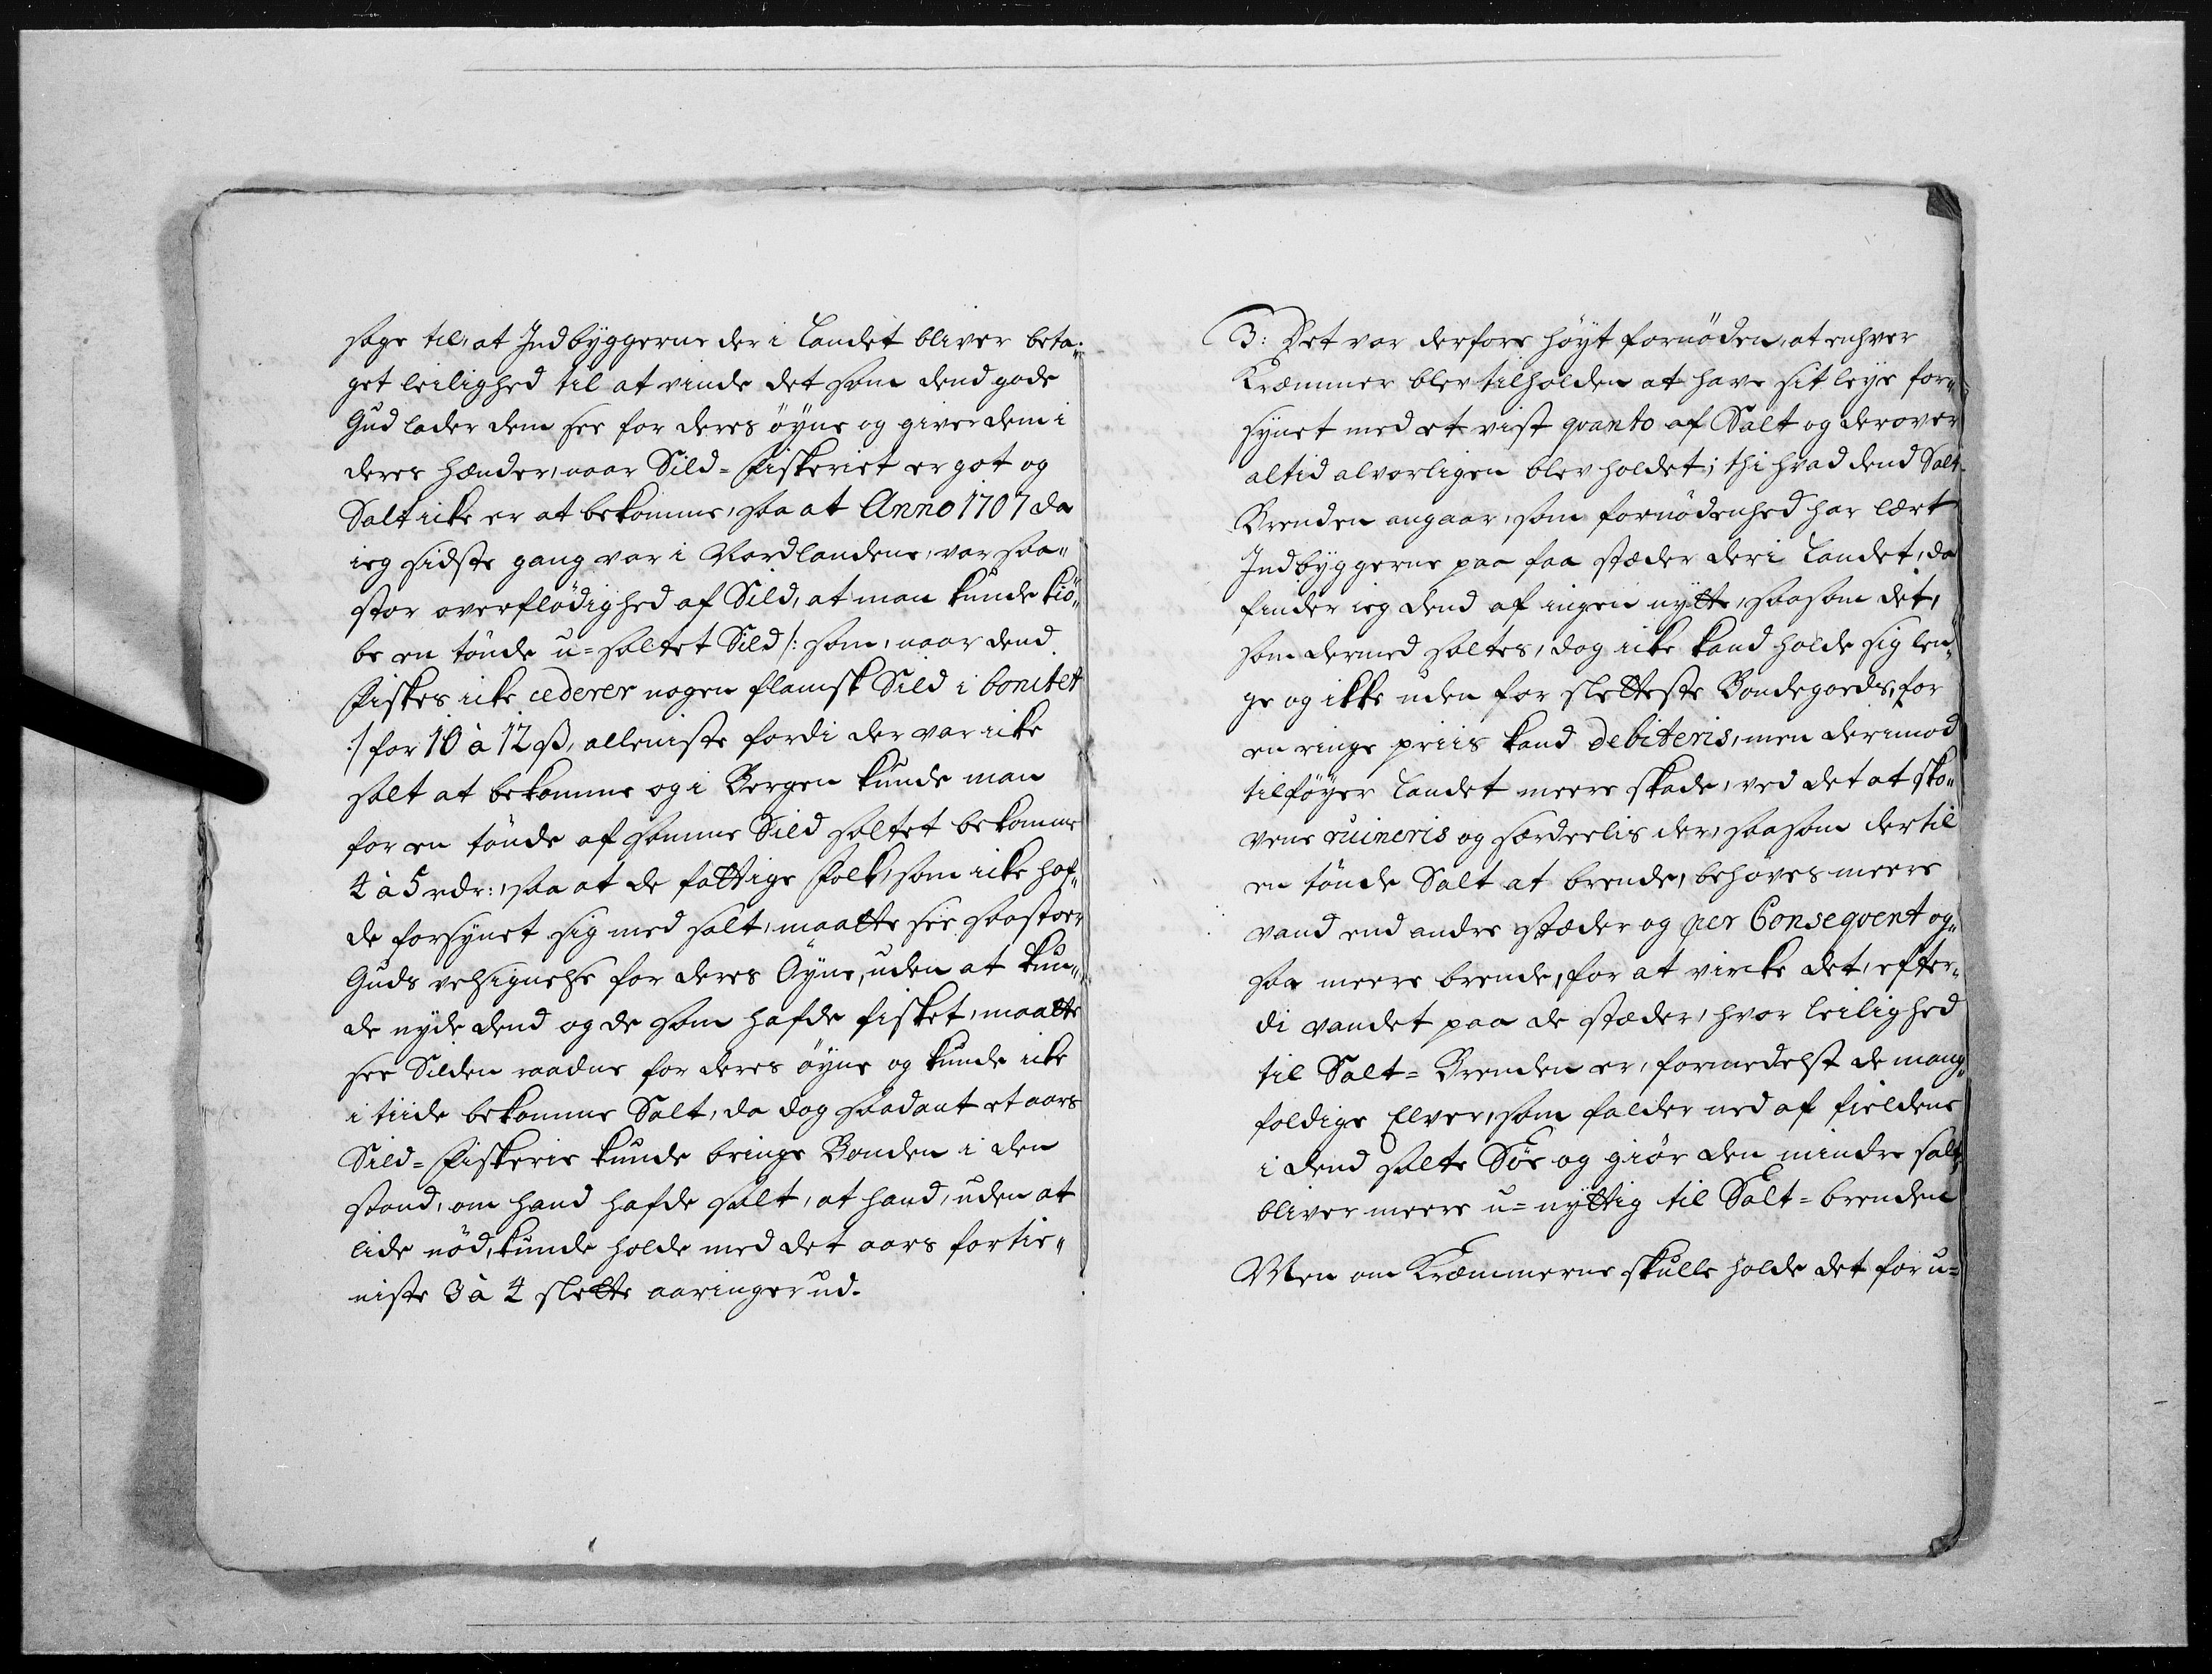 sage til, at Indbyggerne der i Landet bliver beta„
get leilighed til at vinde det som dend gode
Gud lader dem see for deres öyne og giver dem i
deres hænder, naar Sild=fiskeriet er got og
Salt icke er at bekomme, saa at Anno 1707 da
ieg sidste gang var i Nordlandene, var saa„
stor overflödighed af Sild, at man kunde kiö„
be en tönde u=saltet Sild /: som, naar dend
fiskes icke cederer nogen flamsk Sild i bonitet
:/ for 10 à 12 ß, alleniste fordi der var icke
salt at bekomme og i Bergen kunde man
for en tönde af samme Sild saltet bekomme
4 à 5 rdr:, saa at de fattige folk, som icke haf„
de forsynet sig med salt, maatte see saa stoer
Guds velsignelse for deres Öyne, uden at kun„
de nyde dend og de som hafde fisket, maatte
see Silden raadne for deres öyne og kunde icke
i tiide bekomme Salt, da dog saadant et aars
Sild=fiskerie kunde bringe Bonden i den
stand, om hand hafde salt, at hand, uden at
lide nöd, kunde holde med det aars fortie„
niste 3 à 4 slette aaringer ud.
3: Det var derfore höyt fornöden, at enhver
Kræmmer blev tilholden at have sit leye for„
synet med et vist qvanto af Salt og derover
altid alvorligen blev holdet; thi hvad dend Salt-
Brenden angaar, som fornödenhed har lært
Indbyggerne paa faa stæder der i Landet, da
finder ieg dend af ingen nytte, saasom det,
som dermed saltes, dog icke kand holde sig len„
ge og ikke uden for sletteste Bondegoeds, for
en ringe priis kand debiteris, men derimod
tilföyer Landet meere skade, ved det at sko„
vene ruineris og særdeelis der, saasom dertil
en tönde Salt at brende, behöves meere
vand end andre stæder og per Conseqvent og„
saa meere brende, for at vircke det, efter„
di vandet paa de stæder, hvor leilighed
til Salt=Brenden er, formedelst de mang„
foldige Elver, som falder ned af fieldene
i dend salte Söe og giör den mindre salt,
bliver meere u=nyttig til Salt=brenden
Men om Kræmmerne skulle holde det for u=